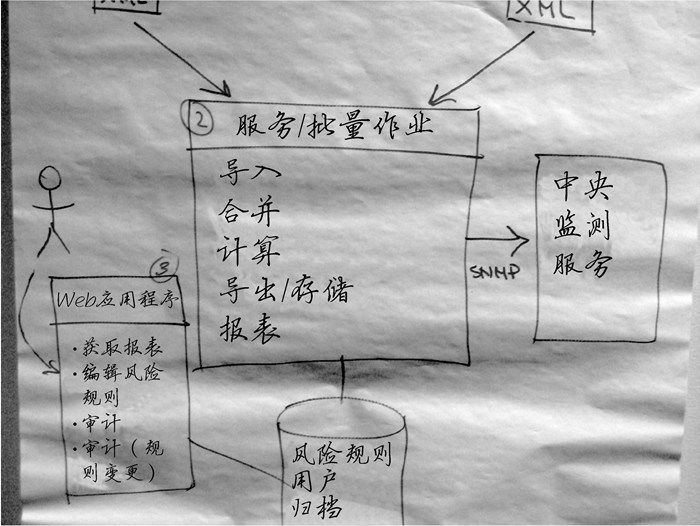 XML
XML
② 服务/批量作业
导入
合并
计算
导出/存储
报表
SNMP
中央
监测
服务
③
Web应用程序
·获取报表
·编辑风险
规则
·审计
·审计（规
则变更）
风险规则
用户
归档